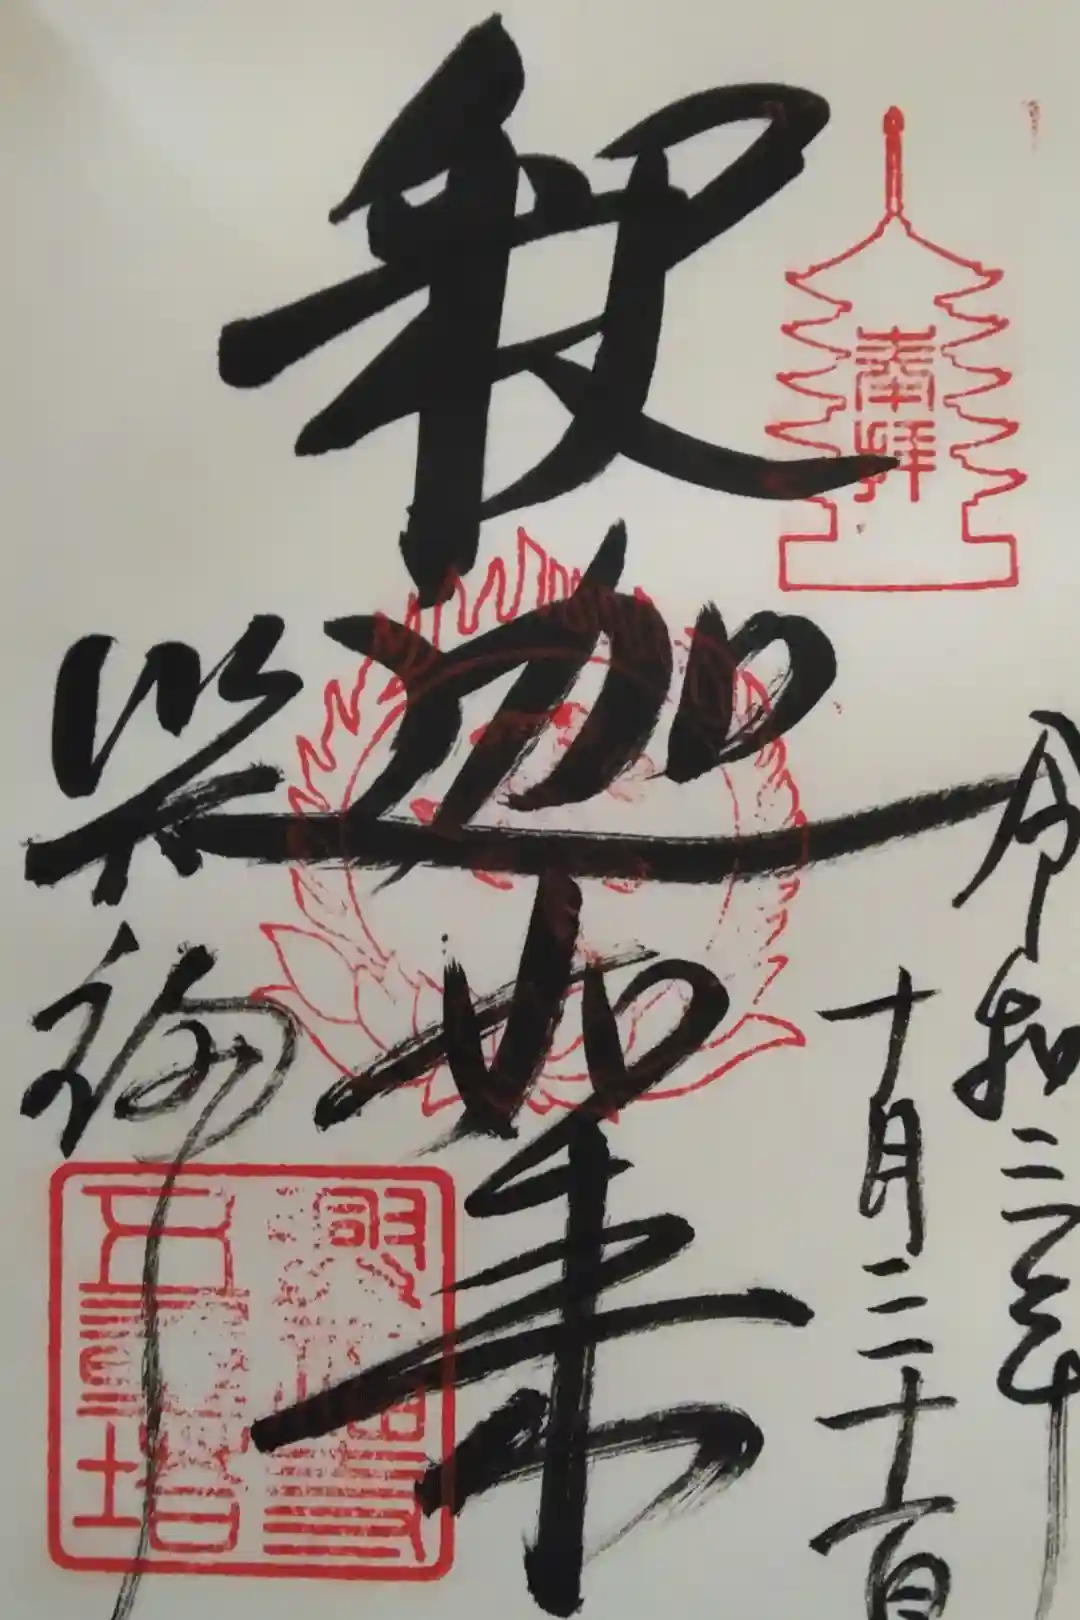 奉拝
令和三年
十月三十一日
釈迦如来
興福寺
興福寺
五重塔